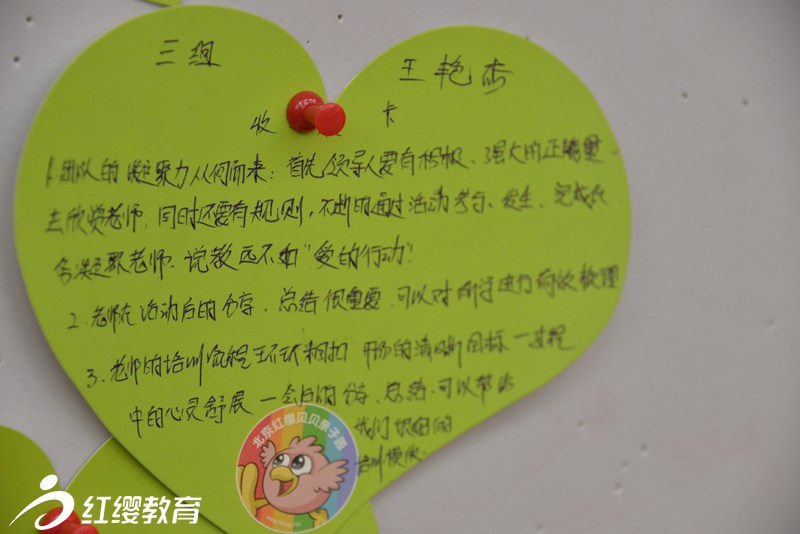 三组 王艳杰
收 卡
1. 团队的凝聚力从何而来：首先领导人要有积极、强大的正能量，
去欣赏老师，同时还要有规则，不断的通过活动参与、发生、完成任
务凝聚老师。说教远不如“爱的行动”！
2. 老师在活动后的分享、总结很重要，可以对所学进行有效梳理
3. 老师的培训流程环环相扣 开场的清晰目标—过程
中的心灵舒展—会后的分享、总结，可以帮助
我们
培训
北京红缨贝贝亲子园
红缨教育